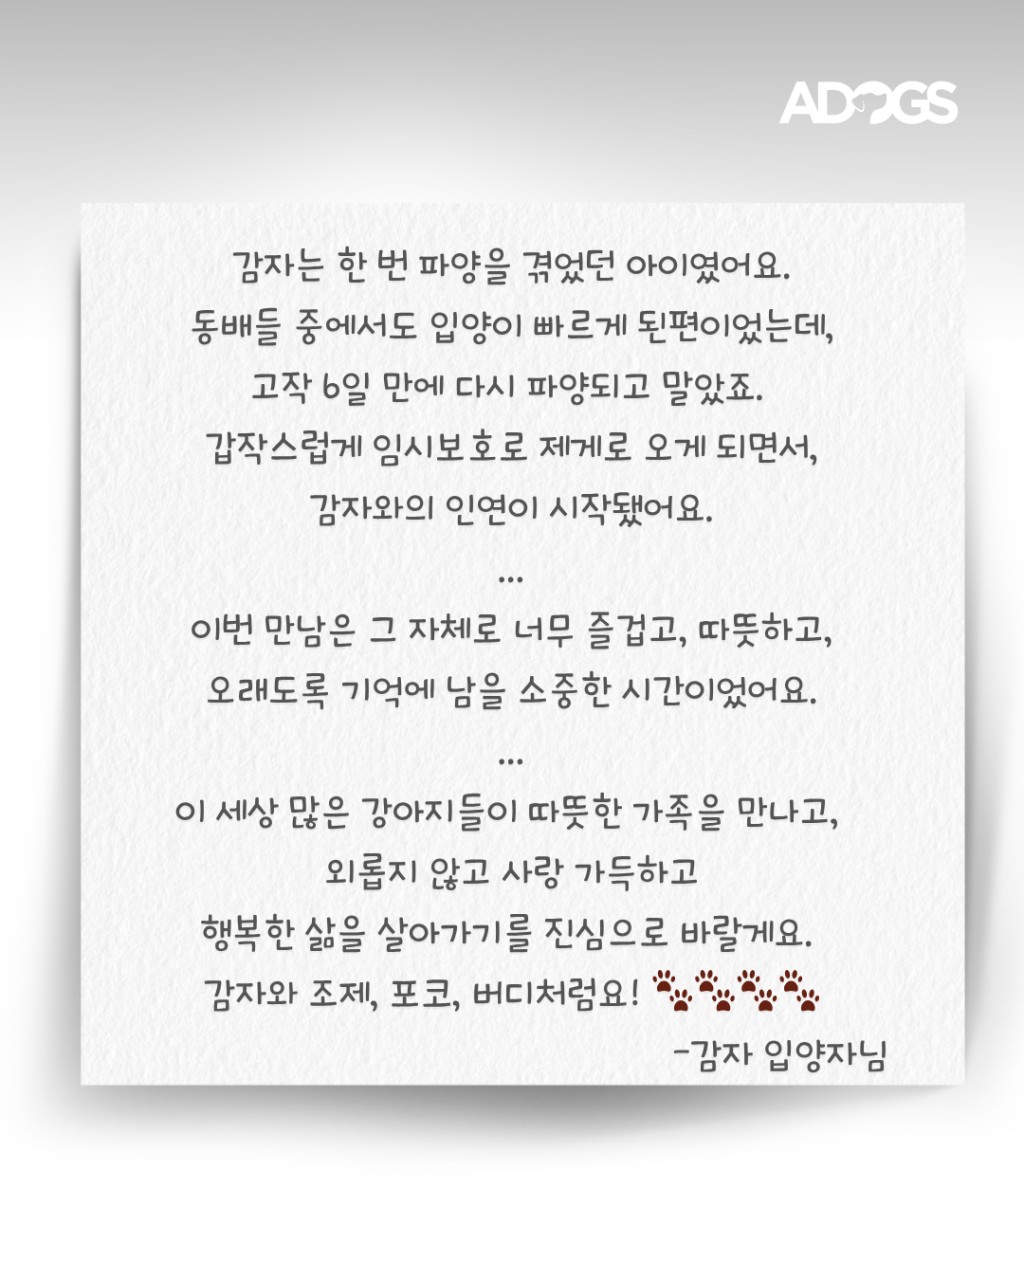 ADOGS
감자는 한 번 파양을 겪었던 아이였어요.
동배들 중에서도 입양이 빠르게 된편이었는데,
고작 6일 만에 다시 파양되고 말았죠.
갑작스럽게 임시보호로 제게로 오게 되면서,
감자와의 인연이 시작됐어요.
...
이번 만남은 그 자체로 너무 즐겁고, 따뜻하고,
오래도록 기억에 남을 소중한 시간이었어요.
...
이 세상 많은 강아지들이 따뜻한 가족을 만나고,
외롭지 않고 사랑 가득하고
행복한 삶을 살아가기를 진심으로 바랄게요.
감자와 조제, 포코, 버디처럼요! 🐾🐾🐾🐾
-감자 입양자님